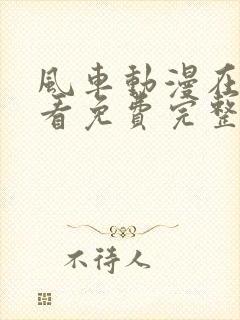 風車動漫在
看免費完整
不待人